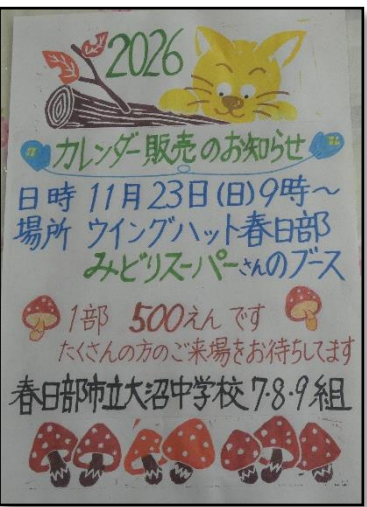 2026
カレンダー販売のお知らせ
日時 11月23日(日)9時～
場所 ウイングハット春日部
みどりスーパーさんのブース
1部 500えんです
たくさんの方のご来場をお待ちしてます
春日部市立大沼中学校7・8・9組